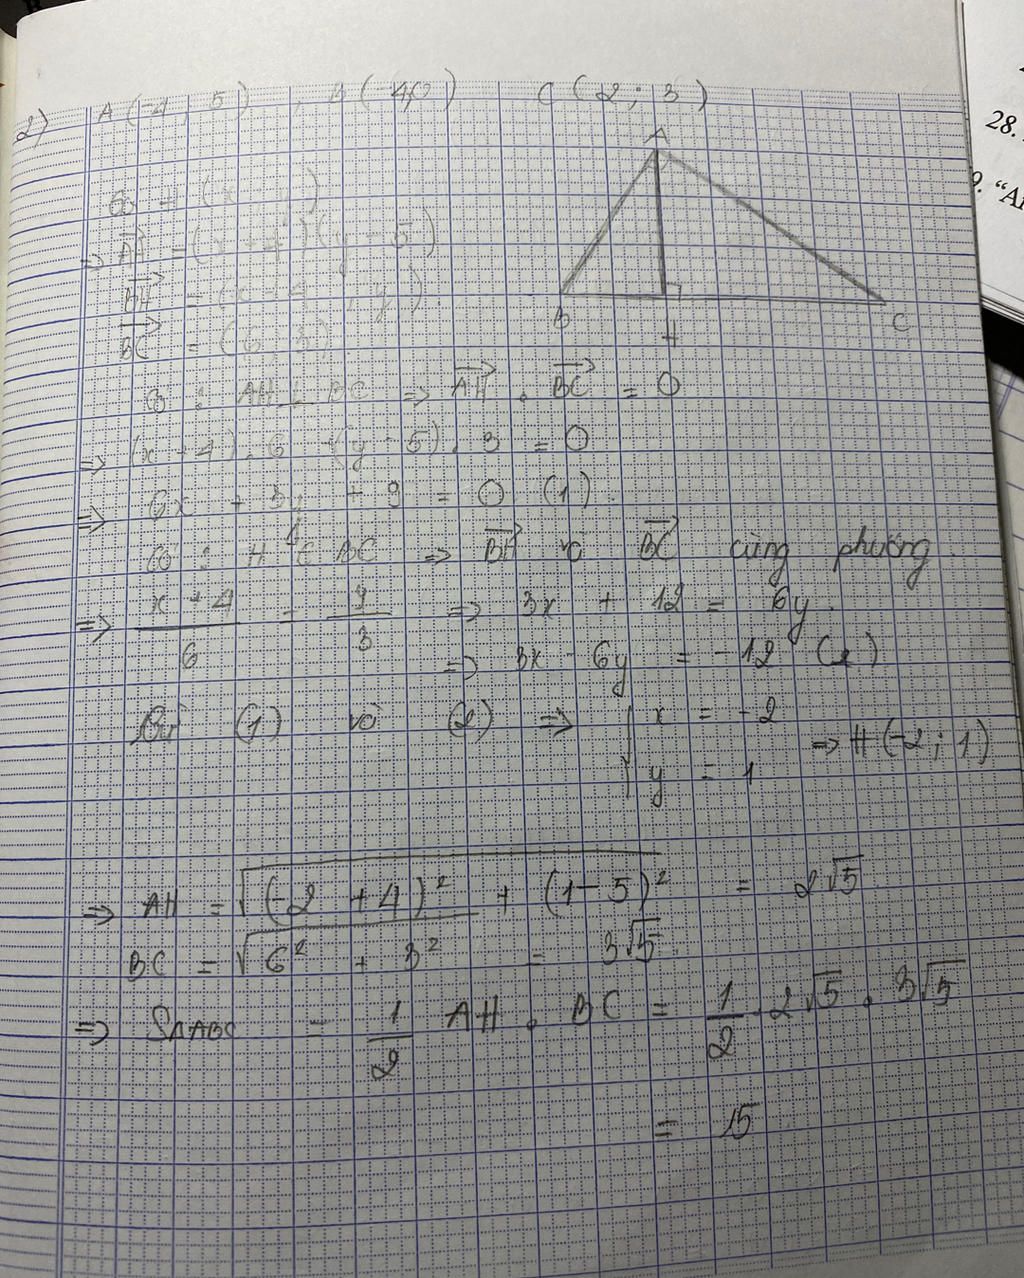 2) A (-4; 5), B (-4;0) C (2; 3)
A
28.
9. "An
Gọi H (x; y)
=> AH = (x + 4; y - 5)
BH = (x + 4; y).
BC = (6; 3)
B
H
C
Có : AH ⊥ BC => AH . BC = 0
=> (x + 4) . 6 + (y - 5) . 3 = 0
=> 6x + 3y + 9 = 0 (1).
Có : H ∈ BC => BH và BC cùng phương.
=> x + 4 / 6 = y / 3 => 3x + 12 = 6y.
=> 3x - 6y = -12 (2)
Từ (1) và (2) => { x = -2
y = 1 => H (-2; 1)
=> AH = √(-2 + 4)² + (1 - 5)² = 2√5.
BC = √6² + 3² = 3√5.
=> SΔABC = 1/2 AH . BC = 1/2 . 2√5 . 3√5
= 15